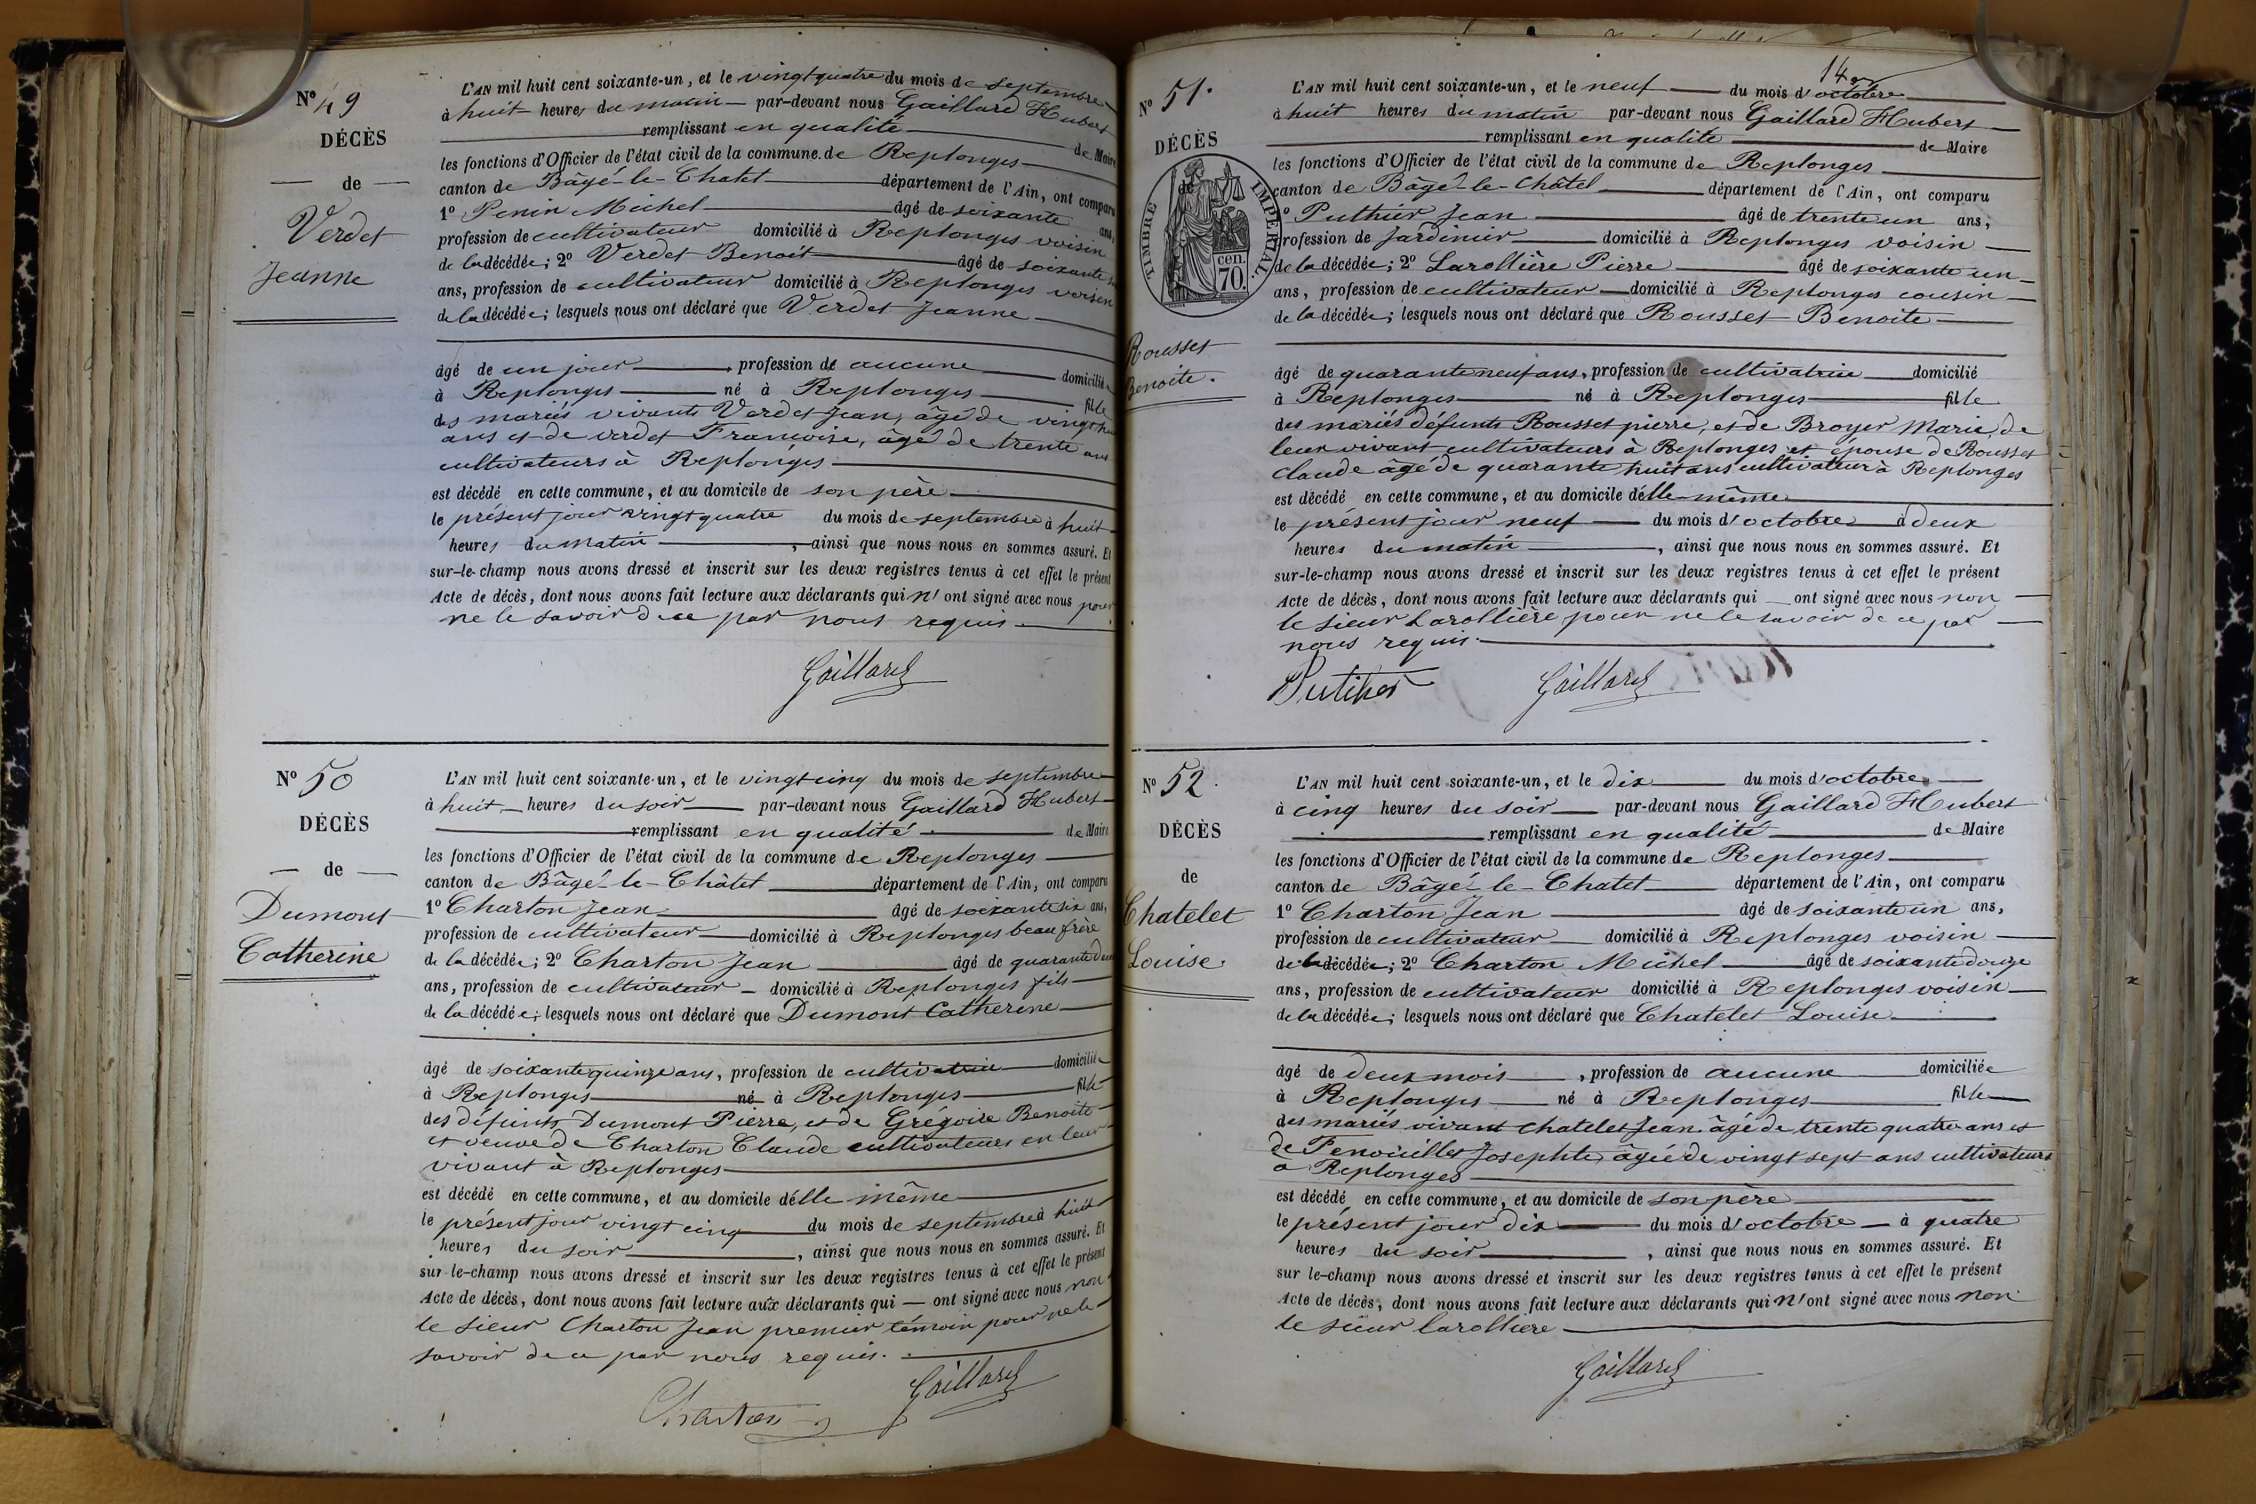 N° 49
DÉCÈS
de
Verdet
Jeanne
L'AN mil huit cent soixante-un, et le vingt quatre du mois de septembre
à huit heures du matin par-devant nous Gaillard Hubert
remplissant en qualité de Maire
les fonctions d'Officier de l'état civil de la commune de Replonges
canton de Bâgé-le-Chatel département de l'Ain, ont comparu
1° Penin Michel âgé de soixante ans,
profession de cultivateur domicilié à Replonges voisin
de la décédée; 2° Verdet Benoit âgé de soixante
ans, profession de cultivateur domicilié à Replonges voisin
de la décédée; lesquels nous ont déclaré que Verdet Jeanne
âgé de un jour, profession de aucune domiciliée
à Replonges né à Replonges fille
des mariés vivants Verdet Jean, âgé de vingt
ans et de verdet Françoise, âgé de trente ans
cultivateurs à Replonges
est décédé en cette commune, et au domicile de son père
le présent jour vingt quatre du mois de septembre à huit
heures du matin, ainsi que nous nous en sommes assuré. Et
sur-le-champ nous avons dressé et inscrit sur les deux registres tenus à cet effet le présent
Acte de décès, dont nous avons fait lecture aux déclarants qui n'ont signé avec nous pour
ne le savoir de ce par nous requis.
Gaillard
N° 50
DÉCÈS
de
Dumont
Catherine
L'AN mil huit cent soixante-un, et le vingt cinq du mois de septembre
à huit heures du soir par-devant nous Gaillard Hubert
remplissant en qualité de Maire
les fonctions d'Officier de l'état civil de la commune de Replonges
canton de Bâgé-le-Châtel département de l'Ain, ont comparu
1° Charton Jean âgé de soixante six ans,
profession de cultivateur domicilié à Replonges beau frère
de la décédée; 2° Charton Jean âgé de quarante deux
ans, profession de cultivateur domicilié à Replonges fils
de la décédée; lesquels nous ont déclaré que Dumont Catherine
âgé de soixante quinze ans, profession de cultivatrice domiciliée
à Replonges né à Replonges fille
des défunts Dumont Pierre, et de Grégoire Benoite
et veuve de Charton Claude cultivateurs en leur
vivant à Replonges
est décédé en cette commune, et au domicile d'élle même
le présent jour vingt cinq du mois de septembre à huit
heures du soir, ainsi que nous nous en sommes assuré. Et
sur-le-champ nous avons dressé et inscrit sur les deux registres tenus à cet effet le présent
Acte de décès, dont nous avons fait lecture aux déclarants qui ont signé avec nous non
le sieur Charton Jean premier témoin pour ne le
savoir de ce par nous requis.
Charton Gaillard
14
N° 51.
DÉCÈS
de
TIMBRE IMPÉRIAL
cen. 70.
Rousset
Benoite.
L'AN mil huit cent soixante-un, et le neuf du mois d'octobre
à huit heures du matin par-devant nous Gaillard Hubert
remplissant en qualité de Maire
les fonctions d'Officier de l'état civil de la commune de Replonges
canton de Bâgé-le-Châtel département de l'Ain, ont comparu
Puthier Jean âgé de trente un ans,
profession de Jardinier domicilié à Replonges voisin
de la décédée; 2° Larollière Pierre âgé de soixante un
ans, profession de cultivateur domicilié à Replonges cousin
de la décédée; lesquels nous ont déclaré que Rousset Benoite
âgé de quarante neuf ans, profession de cultivatrice domicilié
à Replonges né à Replonges fille
des mariés défunts Rousset pierre, et de Broyer Marie, de
leur vivant cultivateurs à Replonges et épouse de Rousset
Claude âgé de quarante huit ans cultivateur à Replonges
est décédé en cette commune, et au domicile d'élle-même
le présent jour neuf du mois d'octobre à deux
heures du matin, ainsi que nous nous en sommes assuré. Et
sur-le-champ nous avons dressé et inscrit sur les deux registres tenus à cet effet le présent
Acte de décès, dont nous avons fait lecture aux déclarants qui ont signé avec nous non
le sieur Larollière pour ne le savoir de ce par
nous requis.
Puthier Gaillard
N° 52.
DÉCÈS
de
Chatelet
Louise.
L'AN mil huit cent soixante-un, et le dix du mois d'octobre
à cinq heures du soir par-devant nous Gaillard Hubert
remplissant en qualité de Maire
les fonctions d'Officier de l'état civil de la commune de Replonges
canton de Bâgé-le-Chatel département de l'Ain, ont comparu
1° Charton Jean âgé de soixante un ans,
profession de cultivateur domicilié à Replonges voisin
de la décédée; 2° Charton Michel âgé de soixante douze
ans, profession de cultivateur domicilié à Replonges voisin
de la décédée; lesquels nous ont déclaré que Chatelet Louise
âgé de deux mois, profession de aucune domiciliée
à Replonges né à Replonges fille
des mariés vivant Chatelet Jean âgé de trente quatre ans et
de Fenouillet Josephte, âgée de vingt sept ans cultivateurs
a Replonges
est décédé en cette commune, et au domicile de son père
le présent jour dix du mois d'octobre à quatre
heures du soir, ainsi que nous nous en sommes assuré. Et
sur le-champ nous avons dressé et inscrit sur les deux registres tenus à cet effet le présent
Acte de décès, dont nous avons fait lecture aux déclarants qui n'ont signé avec nous non
le sieur larolliere
Gaillard